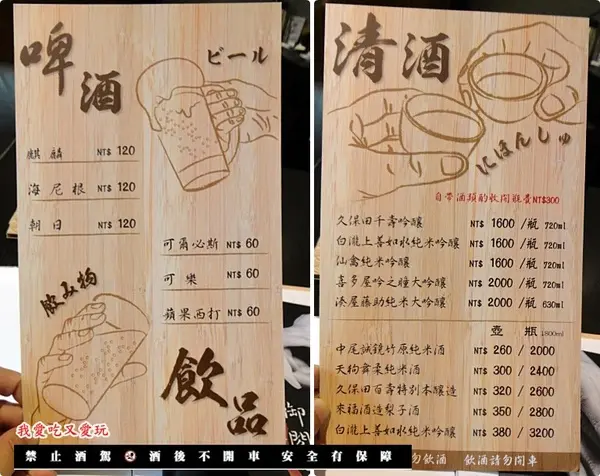 啤酒
ビール
麒麟 NT$ 120
海尼根 NT$ 120
朝日 NT$ 120
可爾必斯 NT$ 60
可樂 NT$ 60
蘋果西打 NT$ 60
飲み物
飲品
我愛吃又愛玩
禁止酒駕 酒後不開車 安全有保障
清酒
にほんしゅ
自帶酒類酌收開瓶費NT$300
久保田千壽吟釀 NT$ 1600 /瓶 720ml
白瀧上善如水純米吟釀 NT$ 1600 /瓶 720ml
仙禽純米吟釀 NT$ 1600 /瓶 720ml
喜多屋吟之瞳大吟釀 NT$ 2000 /瓶 720ml
湊屋藤助純米大吟釀 NT$ 2000 /瓶 630ml
壺 瓶1800ml
中尾誠鏡竹原純米酒 NT$ 260 / 2000
天狗舞柔純米酒 NT$ 300 / 2400
久保田百壽特別本釀造 NT$ 320 / 2600
來福酒造梨子酒 NT$ 350 / 2800
白瀧上善如水純米吟釀 NT$ 380 / 3200
勿飲酒 飲酒請勿開車